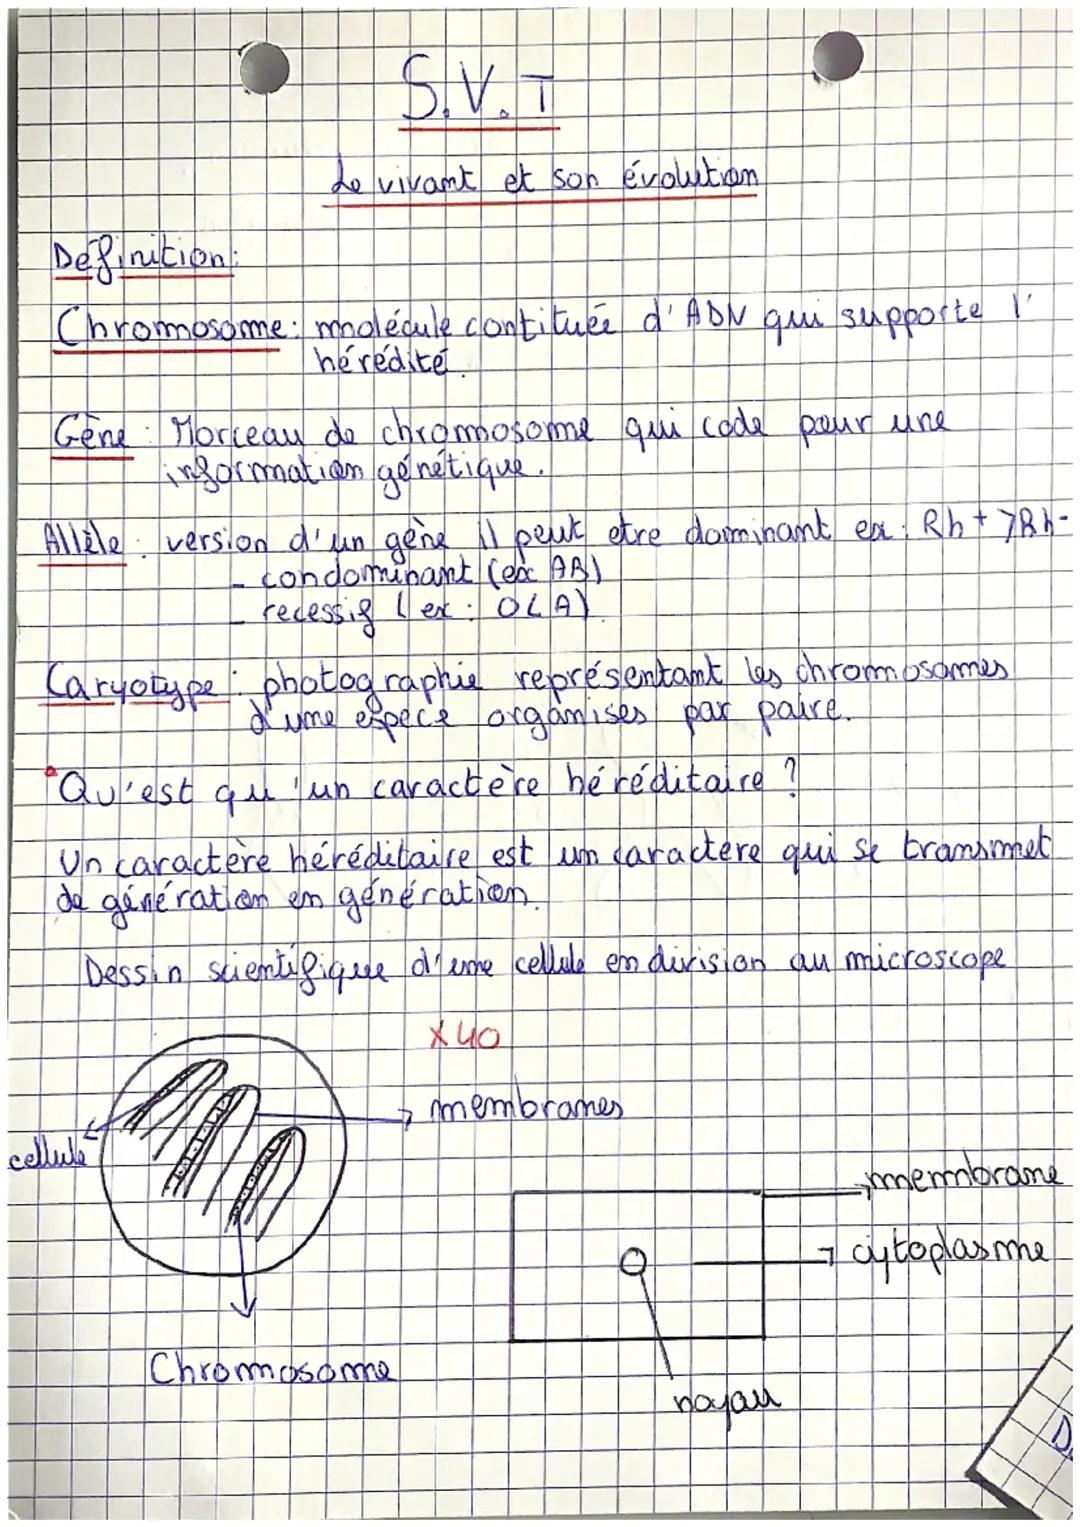 S.V.T
Le vivant et son évolution
Définition:
Chromosome: molécule contituée d'ADN qui supporte l'
hérédité.
Gène : Morceau de chromosome qui code pour une
information génétique.
Allèle : version d'un gène il peut etre dominant ex : Rh+ >Rh-
- condominant (ex AB)
- recessif (ex : O<A)
Caryotype : photographie représentant les chromosomes
d'une espece organises par paire.
Qu'est qu'un caractère héréditaire ?
Un caractère héréditaire est un caractere qui se transmet
de génération en génération.
Dessin scientifique d'une cellule en division au microscope
x40
membranes
cellule
membrane
cytoplasme
Chromosome
noyau
D